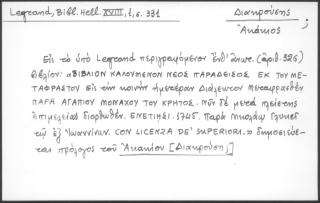 Legrand, Bibl. Hell. XVIII, 1, σ. 331
Διακρούσης
Ἀκάκιος
Εἰς τὸ ὑπὸ Legrand περιγραφόμενον ἐνθ' ἀνωτ. (ἀριθ. 326)
βιβλίον: «ΒΙΒΛΙΟΝ ΚΑΛΟΥΜΕΝΟΝ ΝΕΟΣ ΠΑΡΑΔΕΙΣΟΣ ΕΚ ΤΟΥ ΜΕ-
ΤΑΦΡΑΣΤΟΥ εἰς τὴν κοινὴν ἡμετέραν Διάλεκτον Μεταφρασθὲν
ΠΑΡΑ ΑΓΑΠΙΟΥ ΜΟΝΑΧΟΥ ΤΟΥ ΚΡΗΤΟΣ. Νῦν δὲ μετὰ πλείστης
ἐπιμελείας διορθωθέν. ΕΝΕΤΙΗΣΙ. 1745. Παρὰ Νικολάῳ Γλυκεῖ
τῷ ἐξ Ἰωαννίνων. CON LICENZA DE' SUPERIORI.» δημοσιεύε-
ται πρόλογος τοῦ Ἀκακίου [Διακρούση;]